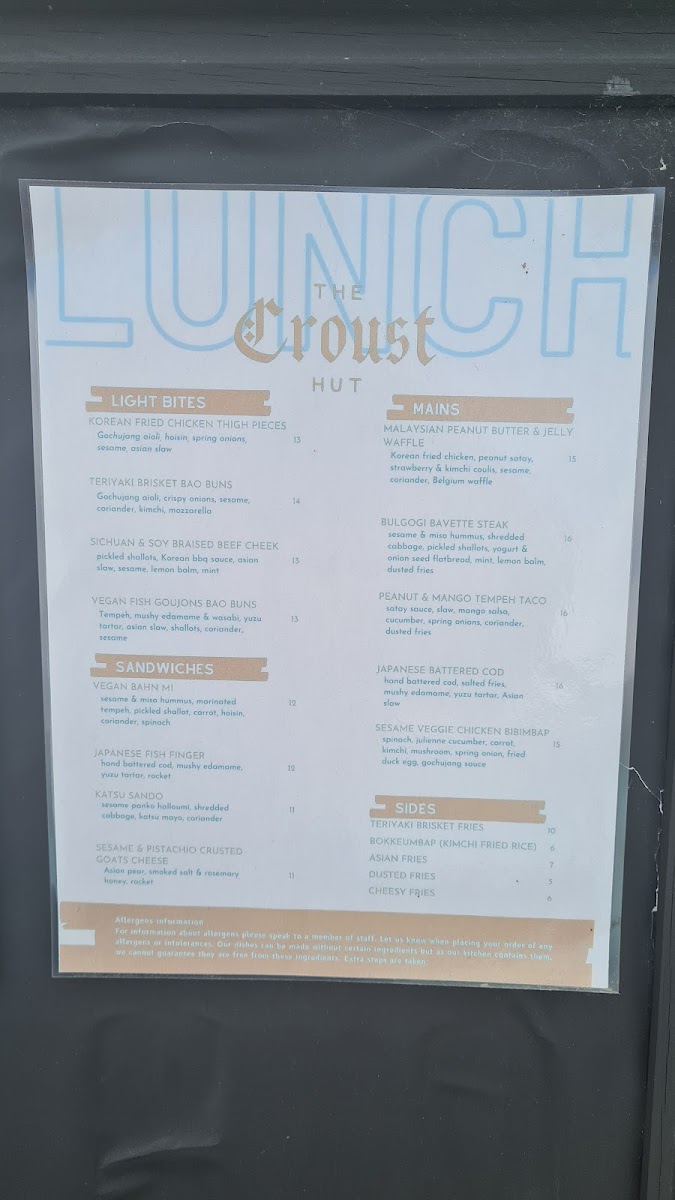 LUNCH
THE
Croust
HUT
LIGHT BITES
KOREAN FRIED CHICKEN THIGH PIECES
Gochujang aioli, hoisin, spring onions, 13
sesame, asian slaw
TERIYAKI BRISKET BAO BUNS
Gochujang aioli, crispy onions, sesame, 14
coriander, kimchi, mozzarella
SICHUAN & SOY BRAISED BEEF CHEEK
pickled shallots, Korean bbq sauce, asian 13
slaw, sesame, lemon balm, mint
VEGAN FISH GOUJONS BAO BUNS
Tempeh, mushy edamame & wasabi, yuzu 13
tartar, asian slaw, shallots, coriander,
sesame
SANDWICHES
VEGAN BAHN MI
sesame & miso hummus, marinated 12
tempeh, pickled shallot, carrot, hoisin,
coriander, spinach
JAPANESE FISH FINGER
hand battered cod, mushy edamame, 12
yuzu tartar, rocket
KATSU SANDO
sesame panko halloumi, shredded 11
cabbage, katsu mayo, coriander
SESAME & PISTACHIO CRUSTED
GOATS CHEESE
Asian pear, smoked salt & rosemary 11
honey, rocket
MAINS
MALAYSIAN PEANUT BUTTER & JELLY
WAFFLE
Korean fried chicken, peanut satay, 15
strawberry & kimchi coulis, sesame,
coriander, Belgium waffle
BULGOGI BAVETTE STEAK
sesame & miso hummus, shredded 16
cabbage, pickled shallots, yogurt &
onion seed flatbread, mint, lemon balm,
dusted fries
PEANUT & MANGO TEMPEH TACO
satay sauce, slaw, mango salsa, 16
cucumber, spring onions, coriander,
dusted fries
JAPANESE BATTERED COD
hand battered cod, salted fries, 16
mushy edamame, yuzu tartar, Asian
slaw
SESAME VEGGIE CHICKEN BIBIMBAP
spinach, julienne cucumber, carrot, 15
kimchi, mushroom, spring onion, fried
duck egg, gochujang sauce
SIDES
TERIYAKI BRISKET FRIES 10
BOKKEUMBAP (KIMCHI FRIED RICE) 6
ASIAN FRIES 7
DUSTED FRIES 5
CHEESY FRIES 6
Allergens information
For information about allergens please speak to a member of staff. Let us know when placing your order of any
allergens or intolerances. Our dishes can be made without certain ingredients but as our kitchen contains them,
we cannot guarantee they are free from these ingredients. Extra steps are taken